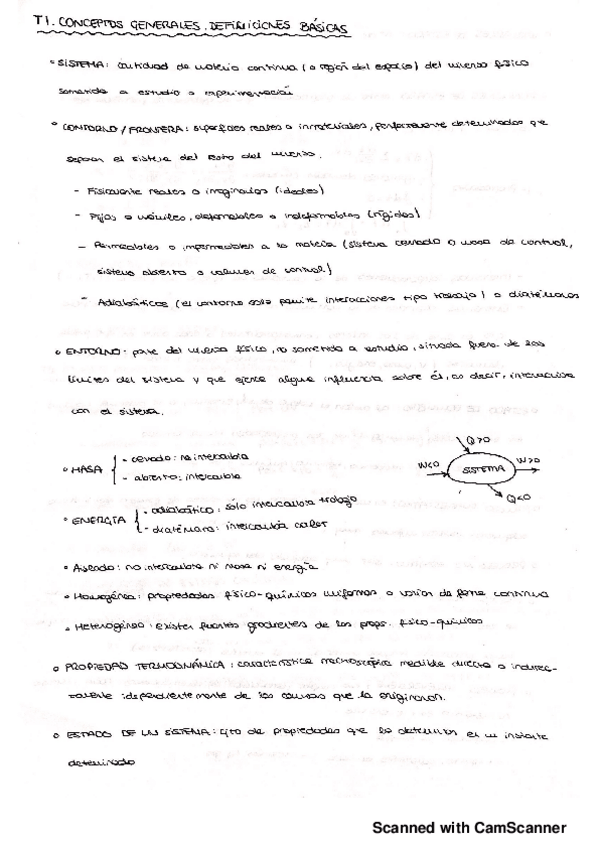 T1. CONCEPTOS GENERALES. DEFINICIONES BÁSICAS
• SISTEMA: cantidad de materia continua (o región del espacio) del universo físico
sometida a estudio o experimentación
• CONTORNO/FRONTERA: superficies reales o inmateriales, perfectamente determinados que
separan el sistema del resto del universo.
- Físicamente reales o imaginarios (ideales)
- Fijos o móviles, deformables o indeformables (rígidos)
- Permeables o impermeables a la materia (sistema cerrado o masa de control,
sistema abierto o volumen de control)
- Adiabáticos (el contorno solo permite interacciones tipo trabajo) o diatérmanos
• ENTORNO: parte del universo físico, no sometida a estudio, situada fuera de los
límites del sistema y que ejerce alguna influencia sobre él, es decir, interacciona
con el sistema.
• MASA { - cerrado: no intercambia
- abierto: intercambia
Q>0
W<0 SISTEMA W>0
Q<0
• ENERGÍA { - adiabático: sólo intercambia trabajo
- diatérmano: intercambia calor
• Aislado: no intercambia ni masa ni energía
• Homogéneo: propiedades físico-químicas uniformes o varían de forma continua
• Heterogéneo: existen fuertes gradientes de las props. físico-químicas
• PROPIEDAD TERMODINÁMICA: característica macroscópica medible directa o indirec-
tamente independientemente de las causas que la originaron.
• ESTADO DE UN SISTEMA: cjto de propiedades que lo determinan en un instante
determinado
Scanned with CamScanner